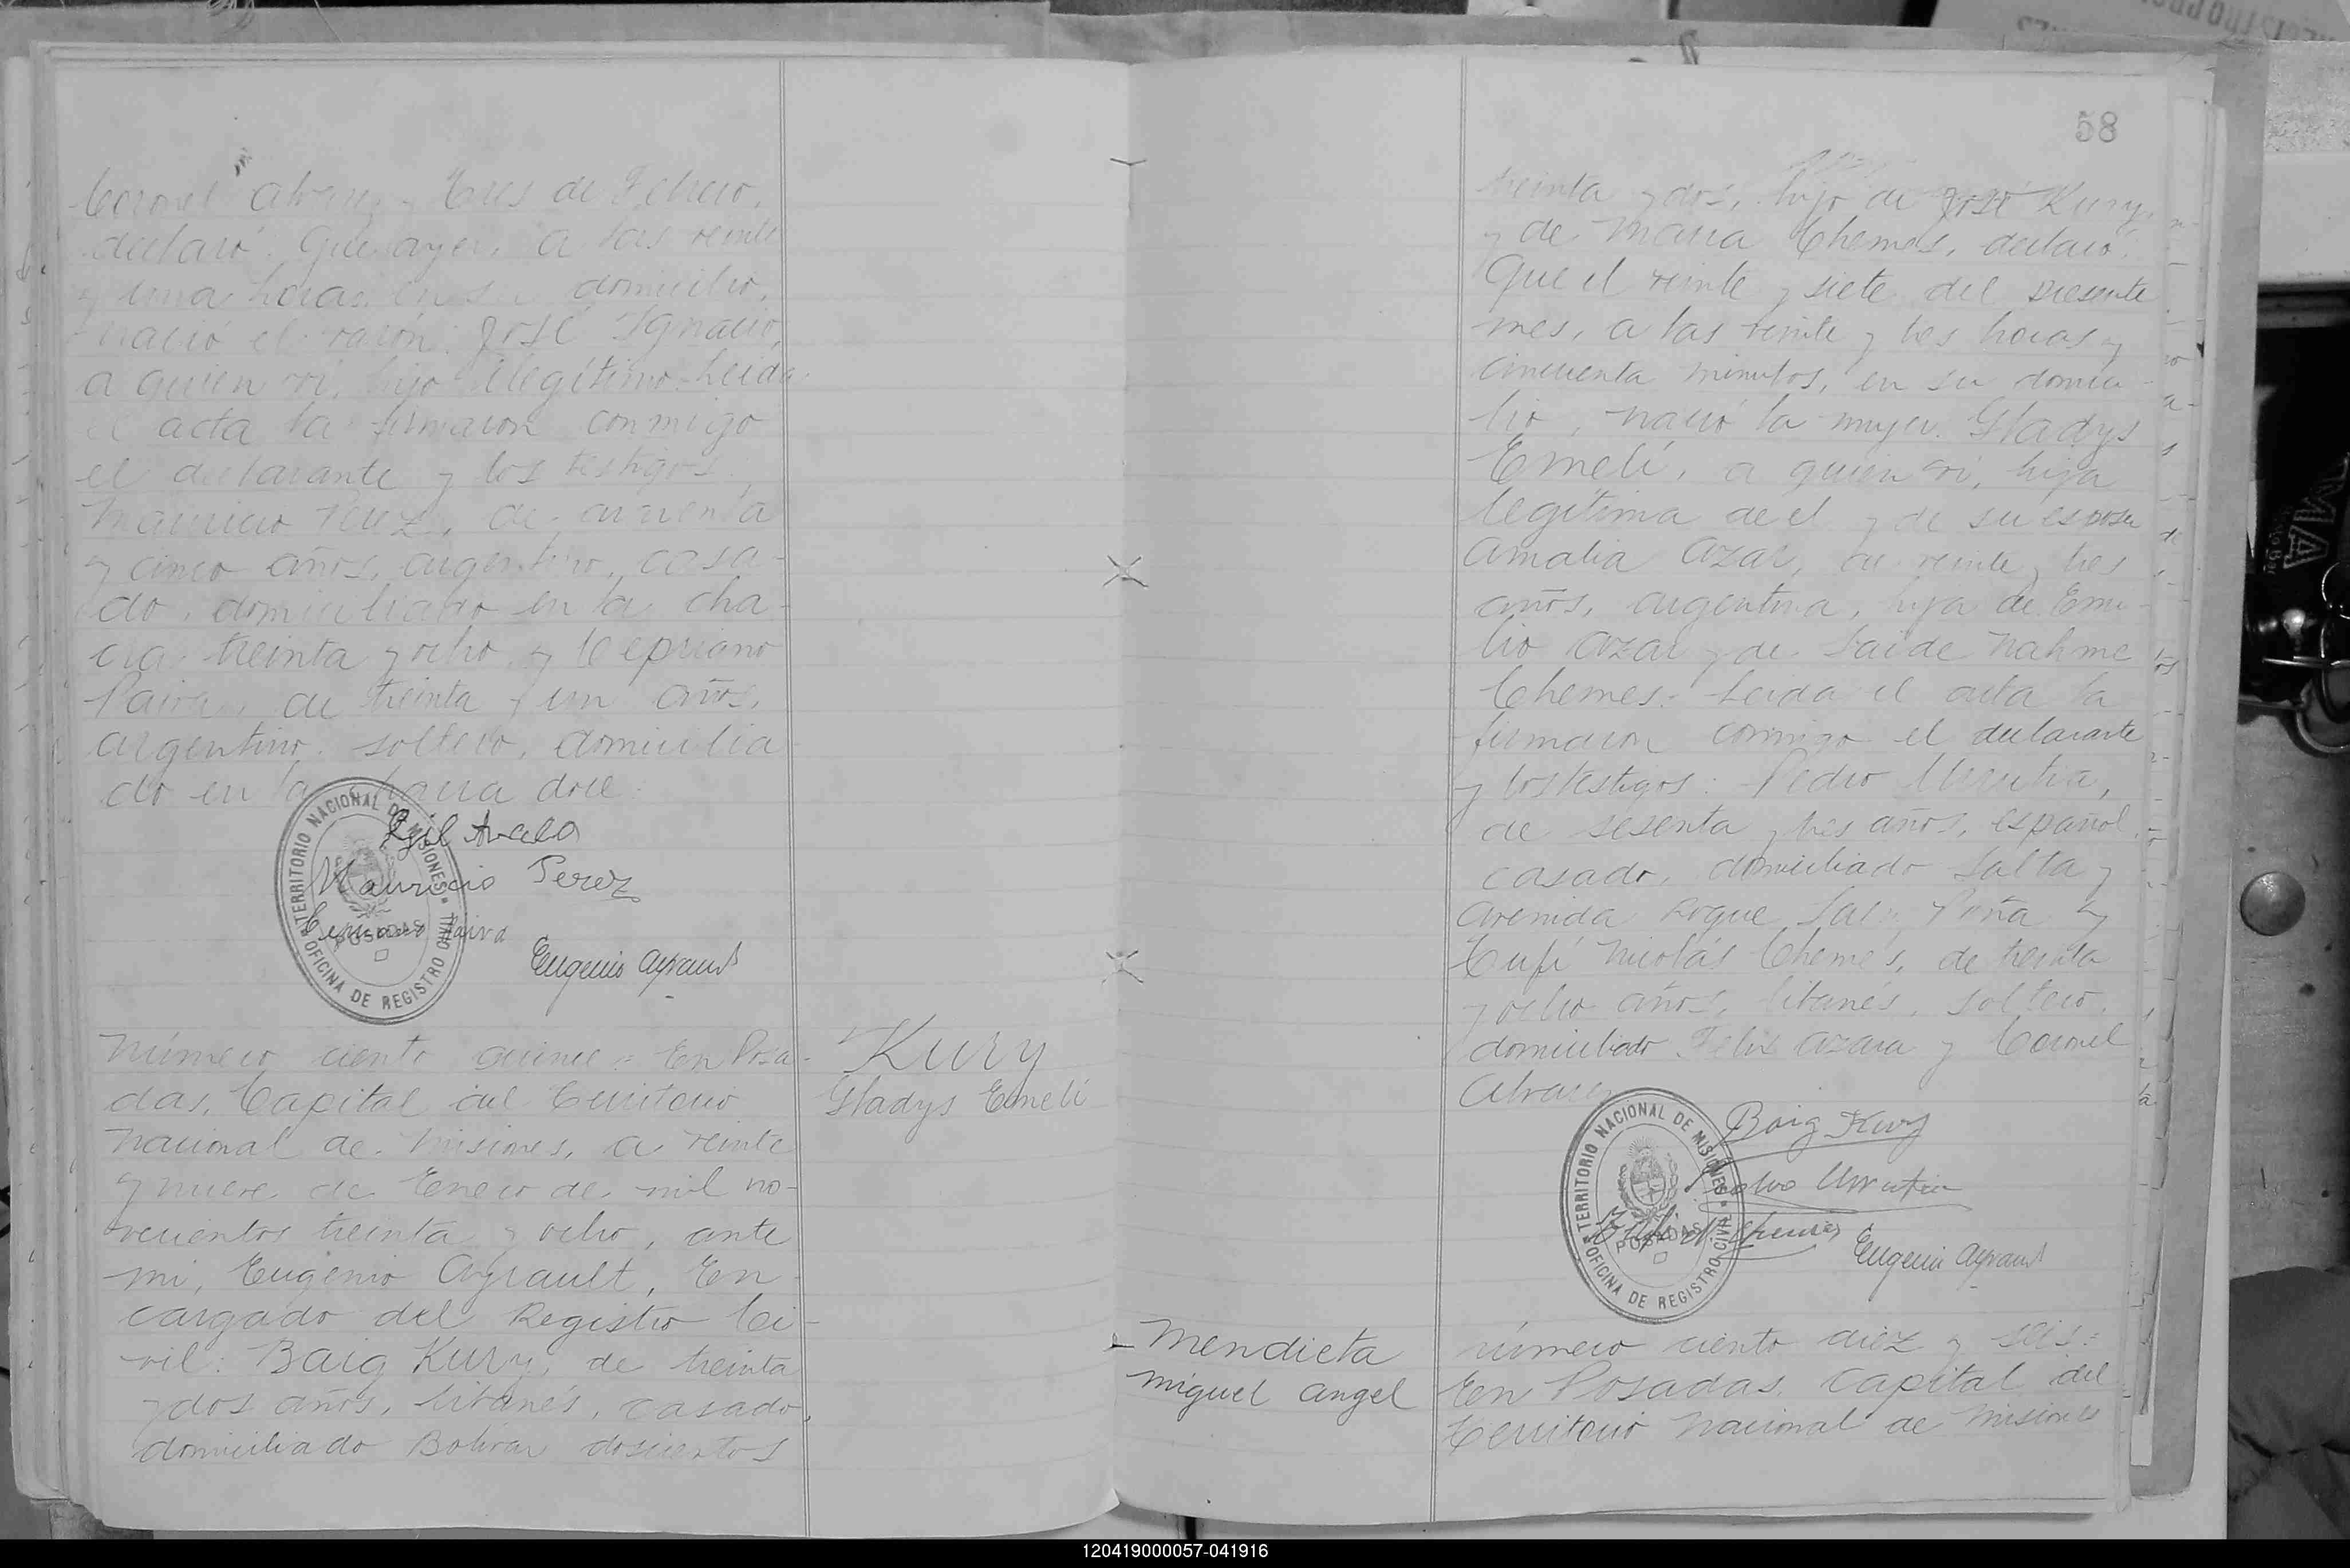 Coronel Alvarez y Tres de Febrero,
declaró: Que ayer, a las veinte
y una horas, en su domicilio,
nació el varón: José Ignacio,
a quien vi, hijo ilegítimo. Leida
el acta la firmaron conmigo
el declarante y los testigos:
Mauricio Perez, de cuarenta
y cinco años, argentino, casa-
do, domiciliado en la cha-
cra treinta y ocho y Cepriano
Paiva, de treinta y un años,
argentino, soltero, domicilia
do en la chacra doce.
TERRITORIO NACIONAL DE MISIONES
OFICINA DE REGISTRO CIVIL
POSADAS
Mauricio Perez
Paiva
Eugenio Ayrault
Número ciento quince: En Posa-
das, Capital del Territorio
Nacional de Misiones, a veinte
y nueve de Enero de mil no-
vecientos treinta y ocho, ante
mi, Eugenio Ayrault, En-
cargado del Registro Ci-
vil: Baig Kury, de treinta
y dos años, libanés, casado,
domiciliado Bolivar doscientos
Kury
Gladys Emelí
58
treinta y dos, hijo de José Kury
y de Maria Chemes, declaró:
Que el veinte y siete del presente
mes, a las veinte y tres horas y
cincuenta minutos, en su domici-
lio, nació la mujer: Gladys
Emelí, a quien vi, hija
legítima de el y de su esposa
Amalia Azar, de veinte y tres
años, argentina, hija de Emi-
lio Azar y de Saide Nahme
Chemes. Leida el acta la
firmaron conmigo el declarante
y los testigos: Pedro Urrutia,
de sesenta y tres años, español,
casado, domiciliado Salta y
Avenida Roque Saenz Peña y
Tufí Nicolás Chemés, de treinta
y ocho años, libanés, soltero,
domiciliado Felix Azara y Coronel
Alvarez
TERRITORIO NACIONAL DE MISIONES
OFICINA DE REGISTRO CIVIL
POSADAS
Baig Kury
Pedro Urrutia
Tufi N. Chemes
Eugenio Ayrault
Mendieta
Miguel Angel
Número ciento diez y seis:
En Posadas, Capital del
Territorio Nacional de Misiones
120419000057-041916